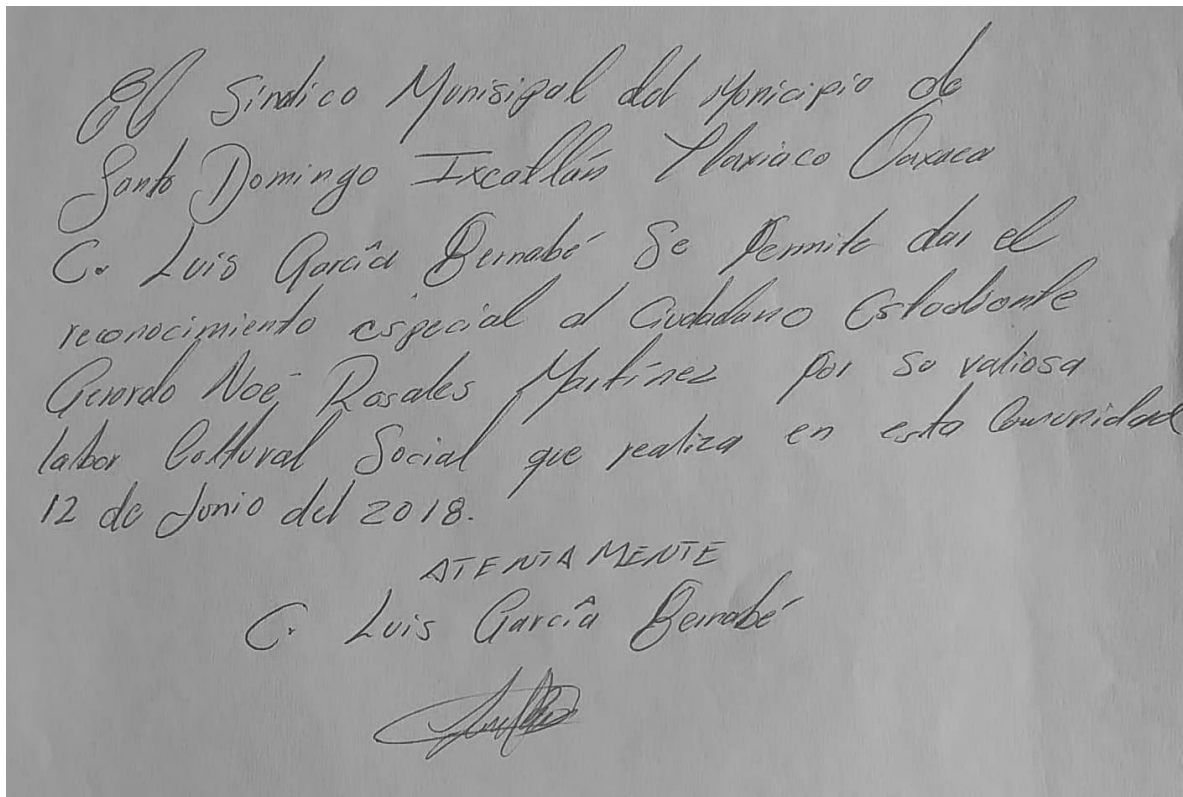 El Sindico Munisipal del Monicipio de
Santo Domingo Ixcatlán Tlaxiaco Oaxaca
C. Luis García Bernabé Se Permite dar el
reconocimiento especial al Ciudadano Estudiante
Gerardo Noé Rosales Martínez por su valiosa
labor Coltural Social que realiza en esta Comunidad
12 de Junio del 2018.
ATENTAMENTE
C. Luis García Bernabé